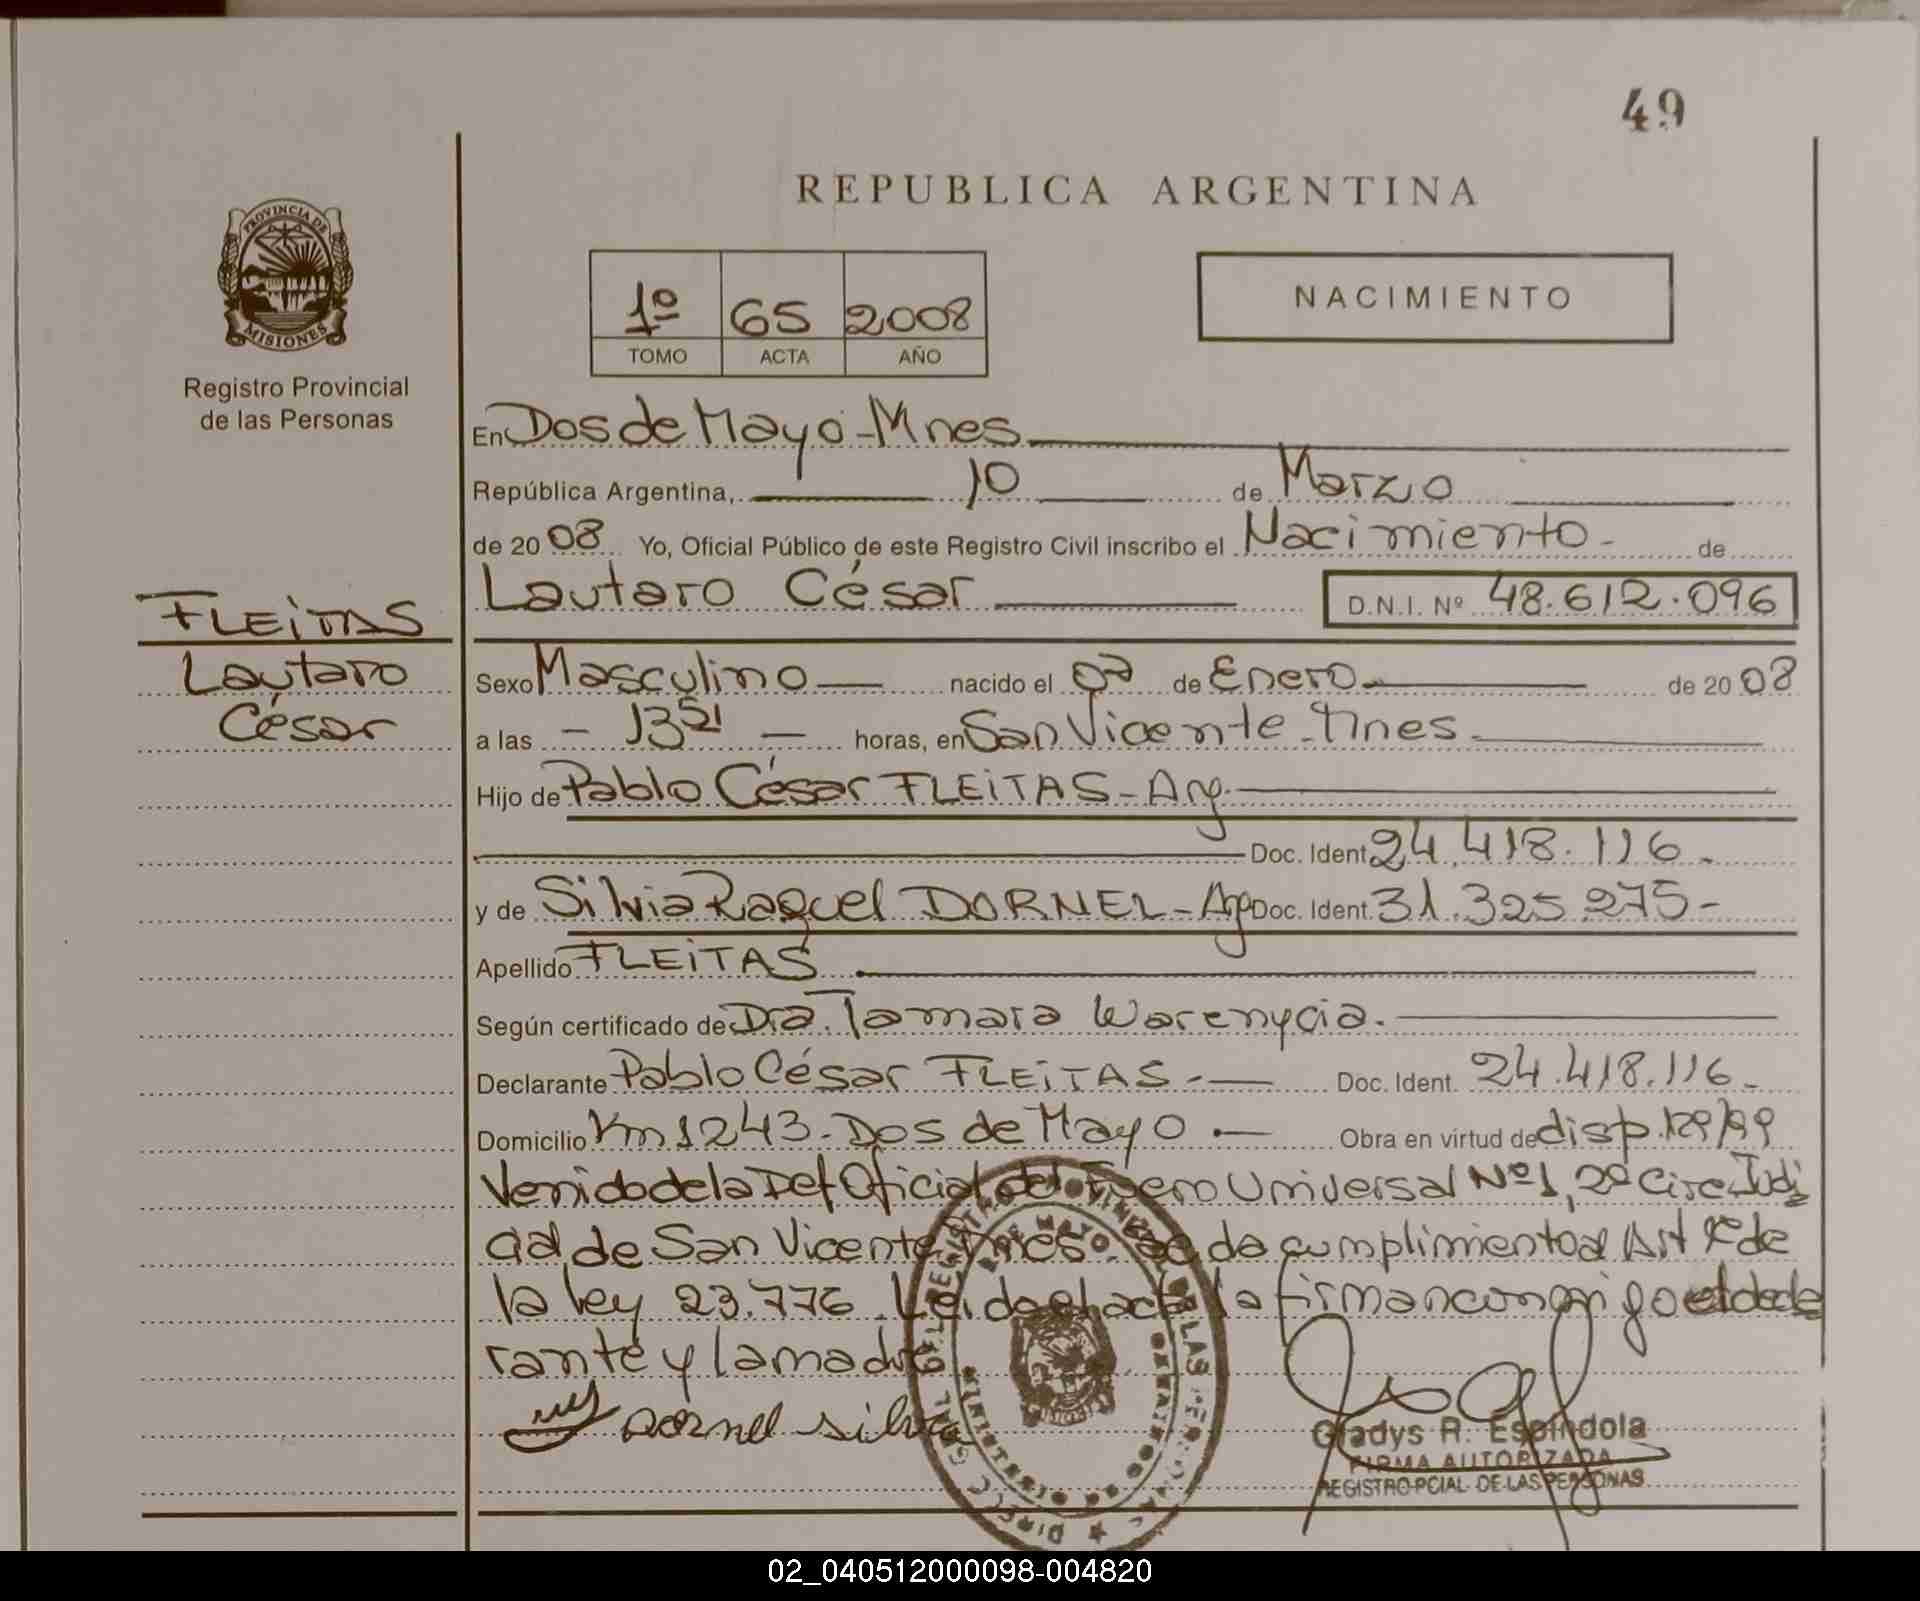 49
REPUBLICA ARGENTINA
PROVINCIA DE
MISIONES
Registro Provincial
de las Personas
1º 65 2008
TOMO ACTA AÑO
NACIMIENTO
En Dos de Mayo - Mnes
República Argentina, 10 de Marzo
de 20 08 Yo, Oficial Público de este Registro Civil inscribo el Nacimiento - de
Lautaro César D.N.I. Nº 48.612.096
FLEITAS
Lautaro
César
Sexo Masculino nacido el 07 de Enero de 20 08
a las - 13 51 - horas, en San Vicente - Mnes.
Hijo de Pablo César FLEITAS - Arg.
Doc. Ident. 24.418.116.
y de Silvia Raquel DORNEL - Arg Doc. Ident. 31.325.275 -
Apellido FLEITAS
Según certificado de Dra. Tamara Warenycia.
Declarante Pablo César FLEITAS - Doc. Ident. 24.418.116 -
Domicilio Km 1243 - Dos de Mayo . - Obra en virtud de disp. 129/99
Venido de la Def Oficial del Fuero Universal Nº 1, 2º Circ Judi
cial de San Vicente Mnes. se da cumplimiento al Art de
la ley 23.776. Leida el acta la firman conmigo el decla
rante y la madre
Dornel Silvia
Gladys R. Espindola
FIRMA AUTORIZADA
REGISTRO PCIAL DE LAS PERSONAS
02_040512000098-004820